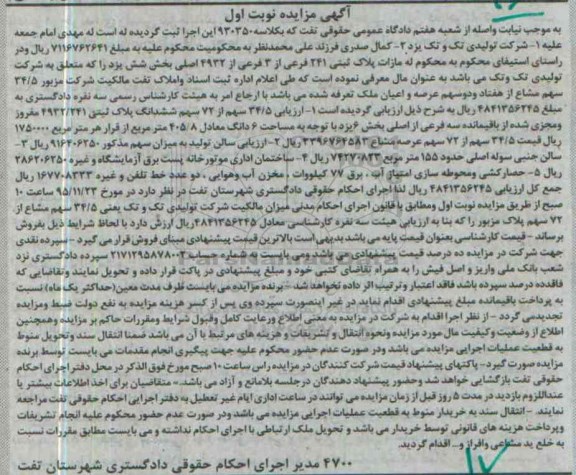 آگهی مزایده نوبت اول
به موجب نیابت واصله از شعبه هفتم دادگاه عمومی حقوقی تفت که بکلاسه ۹۳۰۳۵۰ این اجرا ثبت گردیده له است له مهدی امام جمعه
علیه ۱- شرکت تولیدی تک و تک یزد ۲- کمال صدری فرزند علی محمدنظر به محکومیت محکوم علیه به مبلغ ۷۱۱۶۷۶۲۶۴۱ ریال ودر
راستای استیفای محکوم به محکوم له مازات پلاک ثبتی ۲۴۱ فرعی از ۳ فرعی از ۴۹۳۲ اصلی بخش شش یزد را که متعلق به شرکت
تولیدی تک وتک می باشد به عنوان مال معرفی نموده است که طی اعلام اداره ثبت اسناد واملاک تفت مالکیت شرکت مزبور ۳۴/۵
سهم مشاع از هفتاد ودوسهم عرصه و اعیان ملک تعرفه شده می باشد با ارجاع امر به هیئت کارشناس رسمی سه نفره دادگستری به
مبلغ ۴۸۴۱۳۵۶۲۴۵ ریال به شرح ذیل ارزیابی گردیده است ۱- ارزیابی ۳۴/۵ سهم از ۷۲ سهم ششدانگ پلاک ثبتی ۴۹۳۲/۲۴۱ مفروز
ومجزی شده از باقیمانده سه فرعی از اصلی بخش ۶یزد با توجه به مساحت ۶ دانگ معادل ۴۰۵/۸ متر مربع از قرار هر متر مربع ۱۷۵۰۰۰۰
ریال قیمت ۳۴/۵ سهم از ۷۲ سهم عرصه مشاع ۳۳۹۶۷۶۴۵۸۳ ریال ۲- ارزیابی سالن تولید به میزان سهم مذکور ۹۱۶۴۰۶۲۵۰ ریال ۳-
سالن جنبی سوله اصلی حدود ۱۵۵ متر مربع ۷۴۲۷۰۸۳۳ ریال ۴- ساختمان اداری موتورخانه پست برق آزمایشگاه و غیره ۲۸۶۲۰۶۲۵۰
ریال ۵- حصارکشی ومحوطه سازی امتیاز آب ، برق ۷۷ کیلووات ، مخزن آب وهوایی ، دو عدد خط تلفن و غیره ۱۶۷۷۰۸۳۳۳ ریال
جمع کل ارزیابی ۴۸۴۱۳۵۶۲۴۵ ریال لذا اجرای احکام حقوقی دادگستری شهرستان تفت در نظر دارد در مورخ ۹۵/۱۱/۲۳ ساعت ۱۰
صبح از طریق مزایده نوبت اول ومطابق با قانون اجرای احکام مدنی میزان مالکیت شرکت تولیدی تک و تک یعنی ۳۴/۵ سهم مشاع از
۷۲ سهم پلاک مزبور را که بنا به ارزیابی هیئت سه نفره کارشناسی معادل ۴۸۴۱۳۵۶۲۴۵ریال ارزش دارد با لحاظ شرایط ذیل بفروش
برساند .- قیمت کارشناسی بعنوان قیمت پایه می باشد بدیهی است بالاترین قیمت پیشنهادی مبنای فروش قرار می گیرد - سپرده نقدی
جهت شرکت در مزایده ده درصد قیمت پیشنهادی می باشد ومی بایست به شماره حساب ۲۱۷۱۲۹۵۸۷۸۰۰۲ سپرده دادگستری نزد
شعب بانک ملی واریز و اصل فیش را به همراه تقاضای کتبی خود و مبلغ پیشنهادی در پاکت قرار داده و تحویل نمایند وتقاضایی که
فاقدده درصد سپرده باشد فاقد اعتبار وترتیب اثر داده نخواهد شد - برنده مزایده می بایست ظرف مدت معین (حداکثر یک ماه) نسبت
به پرداخت باقیمانده مبلغ پیشنهادی اقدام نماید در غیر اینصورت سپرده وی پس از کسر هزینه مزایده به نفع دولت ضبط ومزایده
تجدیدمی گردد - از نظر اجرا اقدام به شرکت در مزایده به معنی اطلاع ورعایت کامل وقبول شرایط ومقررات حاکم بر مزایده وهمچنین
اطلاع از وضعیت وکیفیت مال مورد مزایده ونحوه انتقال و تشریفات و هزینه های مرتبط با آن می باشد ضمنا انتقال سند وتحویل منوط
به قطعیت عملیات اجرایی مزایده می باشد ودر صورت عدم حضور محکوم علیه جهت پیگیری انجام مقدمات می بایست توسط برنده
مزایده صورت گیرد- پاکتهای پیشنهاد قیمت شرکت کنندگان در مزایده راس ساعت ۱۰ صبح مورخ فوق الذکر در محل دفتر اجرای احکام
حقوقی تفت بازگشایی خواهد شد وحضور پیشنهاد دهندگان درجلسه بلامانع و آزاد می باشد.- متقاضیان برای اخذ اطلاعات بیشتر یا
عنداللزوم بازدید در مدت ۵ روز قبل از زمان مزایده می توانند در ساعت اداری ایام غیر تعطیل به دفتر اجرایی احکام حقوقی تفت مراجعه
نمایند. - انتقال سند به خریدار منوط به قطعیت عملیات اجرایی مزایده می باشد ودر صورت عدم حضور محکوم علیه انجام تشریفات
وپرداخت هزینه های قانونی توسط خریدار می باشد و تحویل ملک ارتباطی با اجرای احکام نداشته و می بایست مطابق مقررات نسبت
به خلع ید مشاعی وافراز و... اقدام گردید.
۴۷۰۰ مدیر اجرای احکام حقوقی دادگستری شهرستان تفت
۱۷